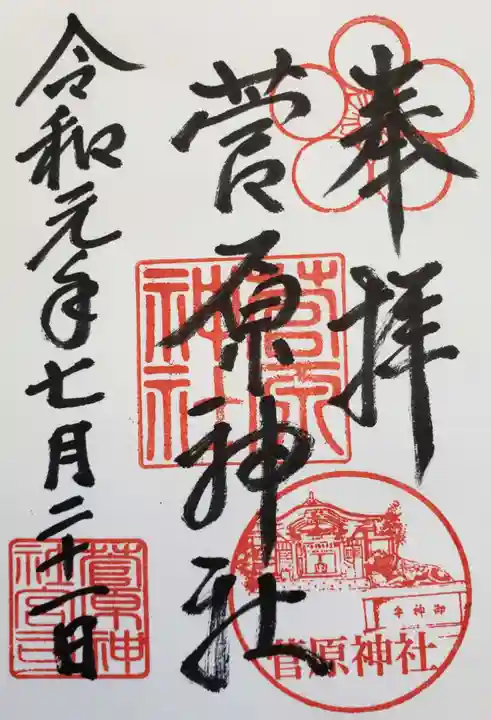 奉拝
菅原神社
菅原神社
御神牛
菅原神社
令和元年七月二十一日
菅原神社宮司